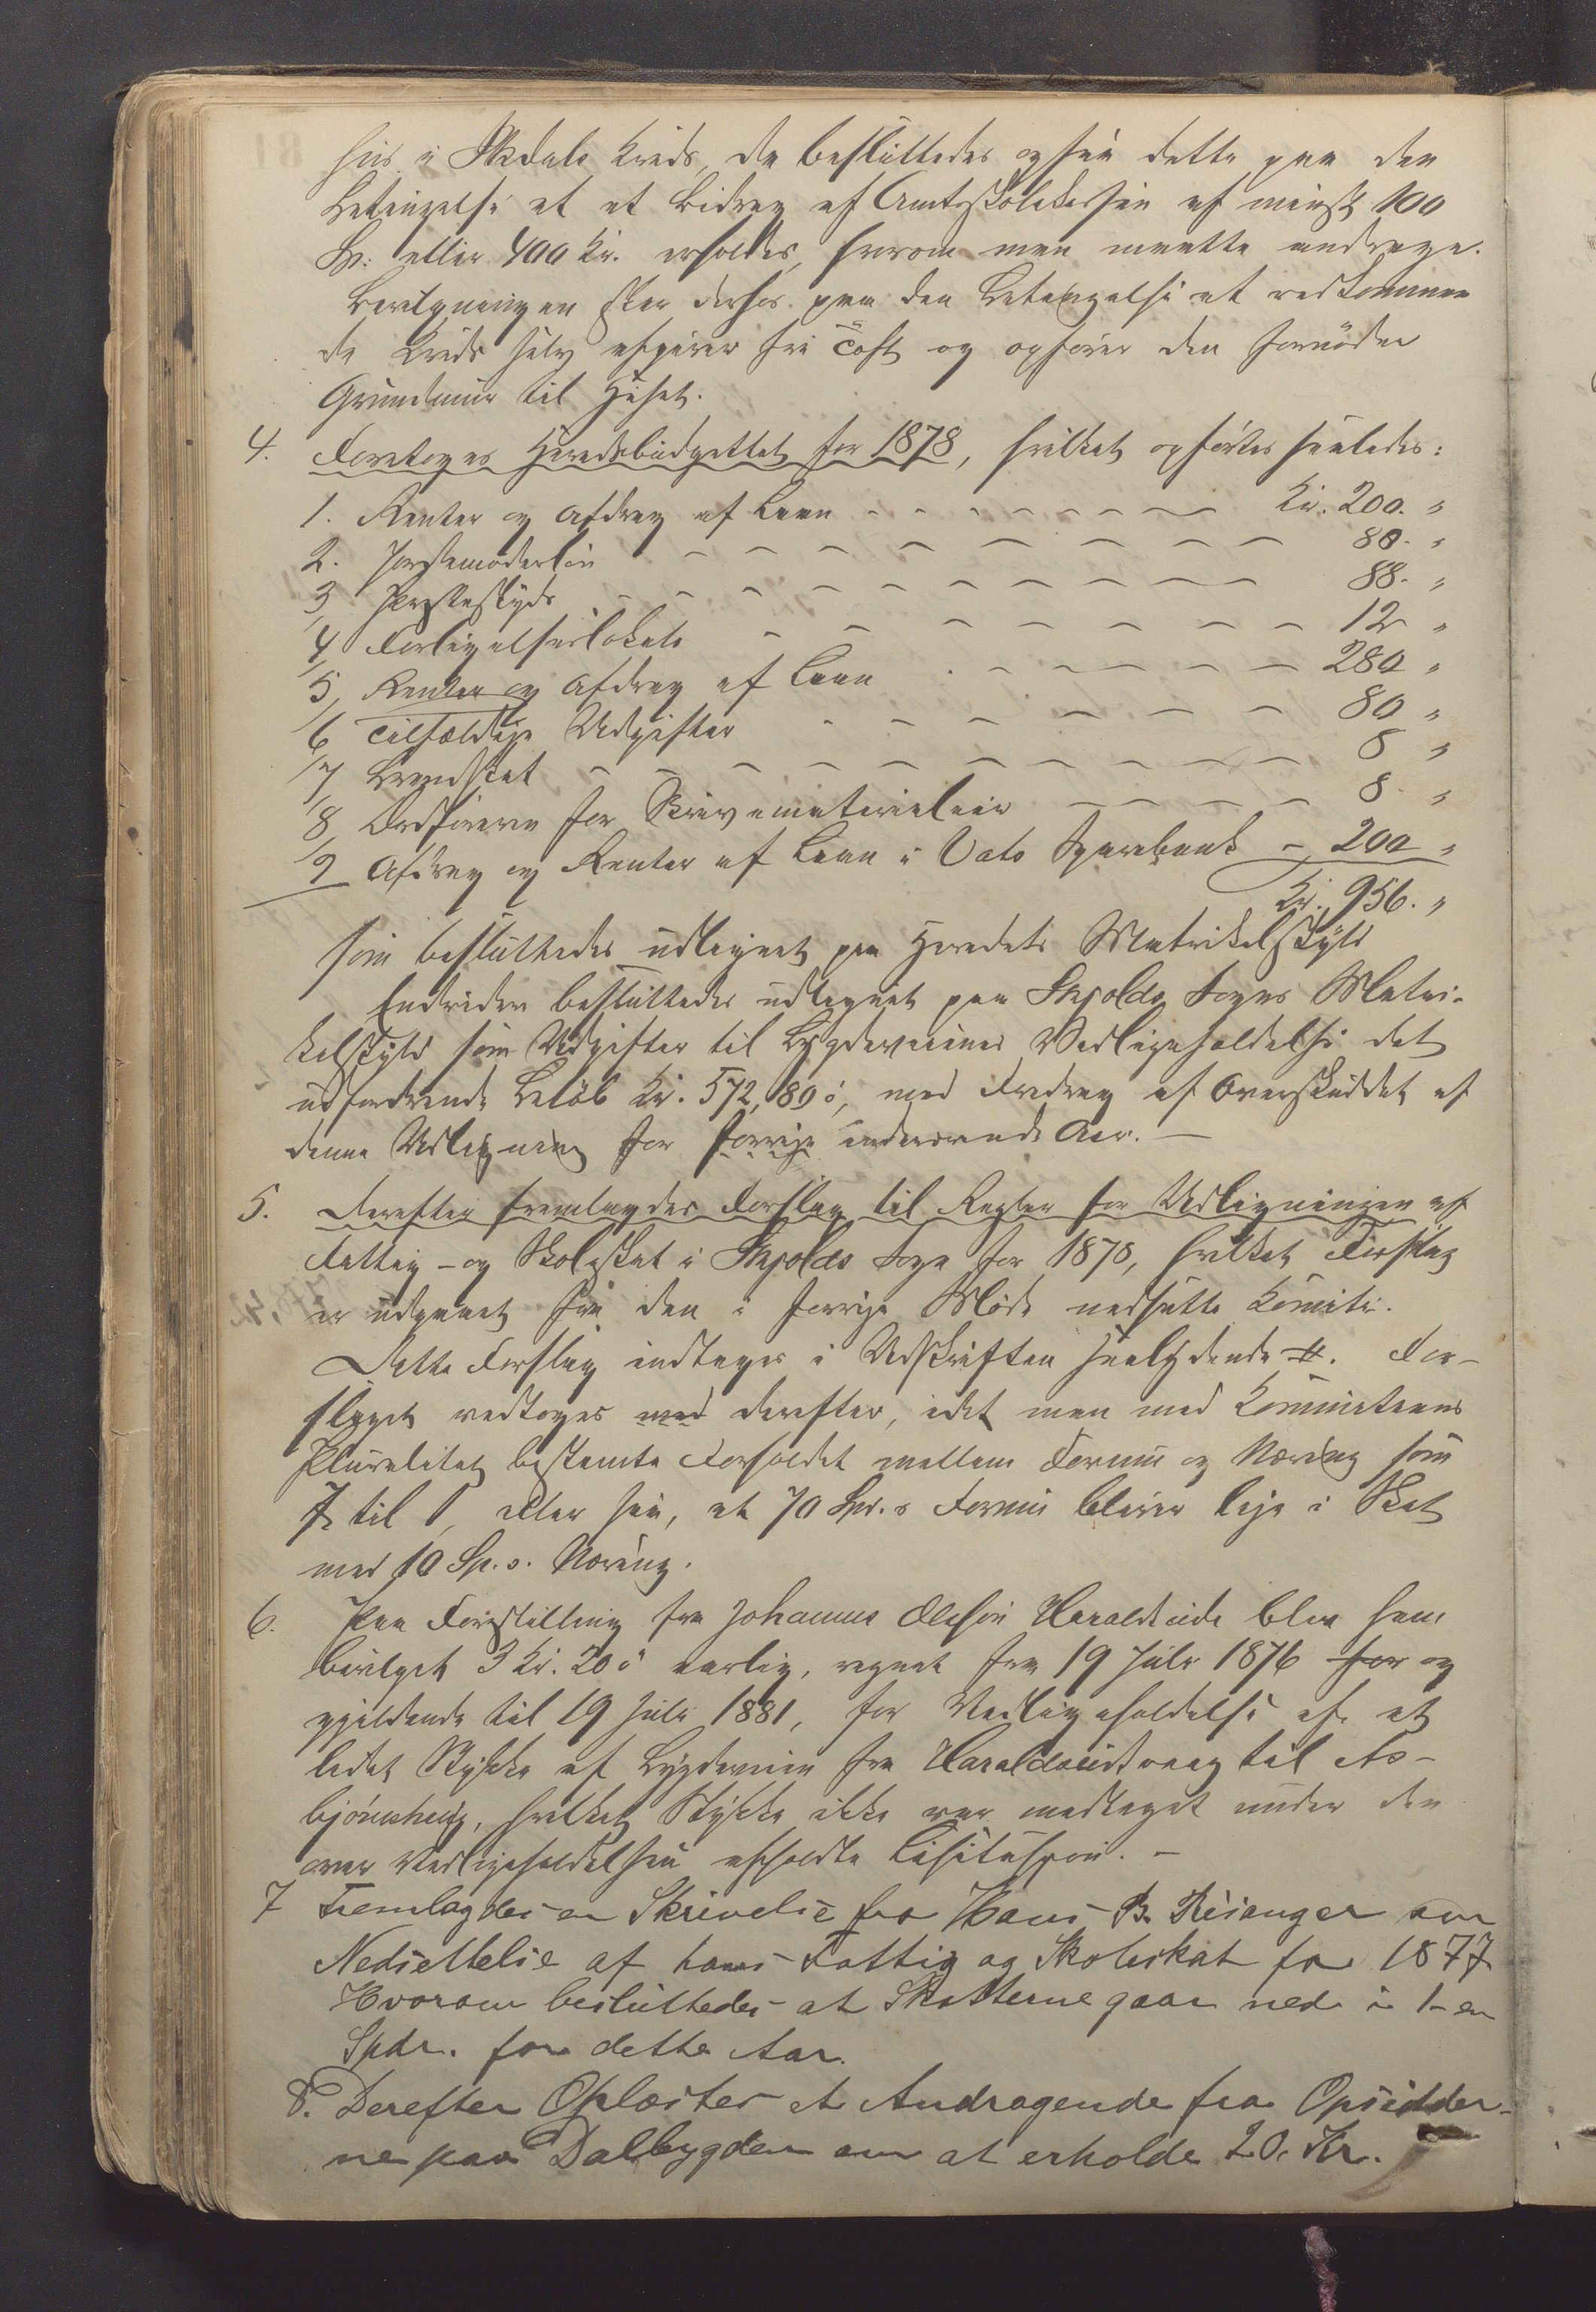 hus i Skdals Kreds, da besluttedes ogsaa dette paa den
Betingelse at et Bidrag af Amtsskolekassen af mindst 100
Sp: eller 400 Kr. erholdes, hvorom man maatte andrage.
Bevilgningen sker derhos paa den Betingelse at vedkommen
de Kreds selv afgiver fri Toft og opfører den fornødne
Grundmur til Huset.
4. Foretoges Heredsbudgettet for 1878, hvilket opførtes saaledes:
1. Renter og Afdrag af Laan Kr. 200. "
2. Jordemoderløn 80. "
3, Presteskyds 88. "
4, Forligelseslokale 12 "
5, Renter og Afdrag af Laan 280 "
6, Tilfældige Udgifter 80 "
7, Brandskat 8 "
8, Ordføreren for Skrivematerialier 8. "
9 Afdrag og Renter af Laan i Vats Sparebank 200 "
Kr. 956. "
som besluttedes udlignet paa Heredets Matrikelskyld
Endvidere besluttedes udlignet paa Skjolds Sogns Matri-
kelskyld som Udgifter til Bygdeveienes Vedligeholdelse det
udfordrende Beløb Kr. 572,80 ø, med Fradrag af Overskuddet af
denne Udligning for forrige indeværende Aar. —
5. Derefter fremlagdes Forslag til Regler for Udligningen af
Fattig- og Skoleskat i Skjolds Sogn for 1878, hvilket Forslag
er udgaaet fra den i forrige Møde nedsatte Komite.
Dette Forslag indtages i Udskriften saalydende #. For-
slaget vedtoges med derefter, idet man med Kommiteens
Pluralitet bestemte Forholdet mellem Formue og Næring som
7 til 1, eller saa, at 70 Spd.s Formue bliver lige i Skat
med 10 Sp.s. Næring.
6. Paa Forestilling fra Johannes Olesøn Haraldseide blev ham
bevilget 3 Kr. 20 ø aarlig, regnet fra 19 Juli 1876 for og
gjældende til 19 Juli 1881, for Vedligeholdelse af et
lidet Stykke af Bygdeveien fra Haraldseidvaag til As-
bjørnshaug, hvilket Stykke ikke var medtaget under den
over Vedligeholdelsen afholdte Lisitasjon. —
7 Fremlagdes en Skrivelse fra Hans B. Risanger om
Nedsettelse af hans Fattig og Skoleskat for 1877
Hvorom besluttedes at Skatterne gaar ned i 1- en
Spdr. for dette Aar.
8. Derefter Oplæstes et Andragende fra Opsidder-
ne paa Dalbygden om at erholde 20. Kr.